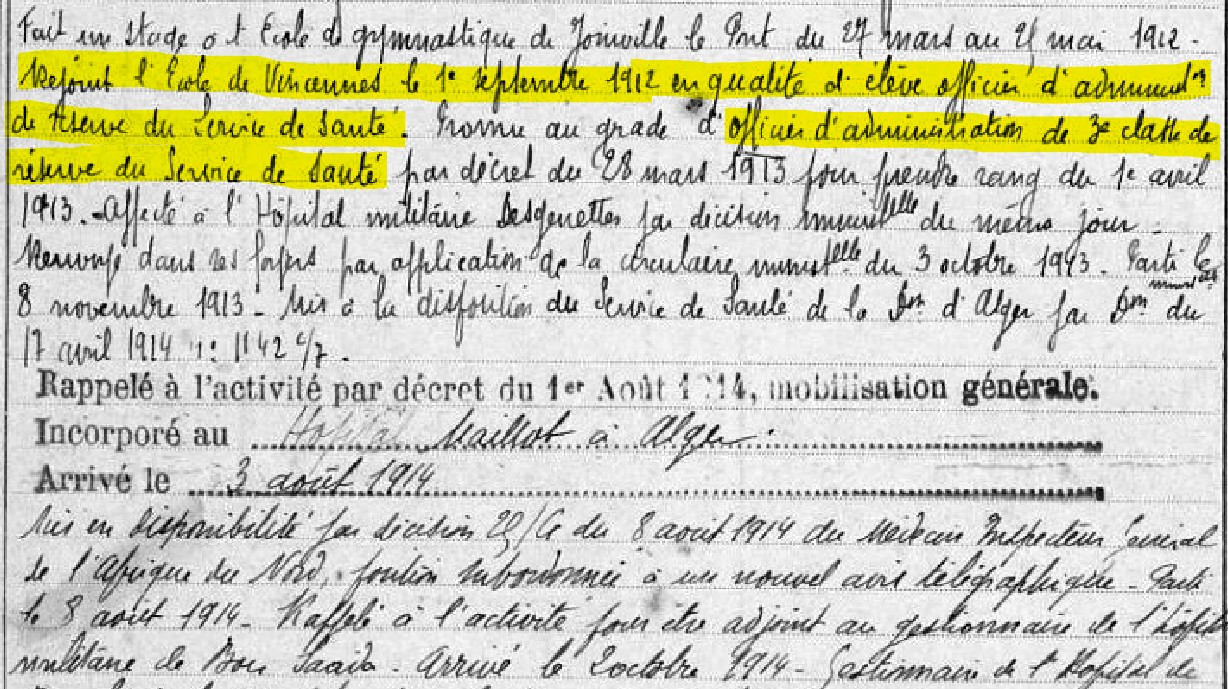 Fait un stage à l'Ecole de gymnastique de Joinville le Pont du 27 mars au 21 mai 1912 -
Rejoint l'Ecole de Vincennes le 1e septembre 1912 en qualité d'élève officier d'administon
de réserve du Service de Santé. Promu au grade d'officier d'administration de 3e classe de
réserve du Service de Santé par décret du 28 mars 1913 pour prendre rang du 1e avril
1913. - Affecté à l'Hôpital militaire Desgenettes par décision ministelle du même jour -
Renvoyé dans ses foyers par application de la circulaire ministelle du 3 octobre 1913. Parti le
8 novembre 1913 - Mis à la disposition du Service de Santé de la Don d'Alger par Don du
17 avril 1914 n: 1142 c/7 -
Rappelé à l'activité par décret du 1er Août 1914, mobilisation générale.
Incorporé au Hopital Maillot à Alger.
Arrivé le 3 août 1914
Mis en disponibilité par décision du 8 août 1914 du Médecin Inspecteur Général
de l'Afrique du Nord, subordonnée à un nouvel avis télégraphique - Parti
le 8 août 1914 - Rappelé à l'activité pour être adjoint au gestionnaire de l'Hôpital
militaire de Bou Saada - Arrivé le 2 octobre 1914 - Gestionnaire de l'Hopital de